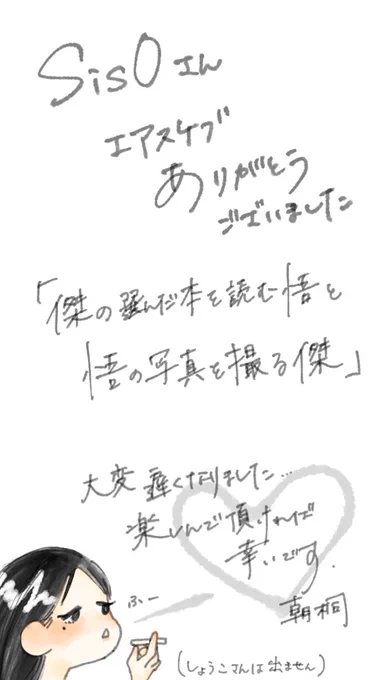 SisOさん
エアスケブ
ありがとう
ございました
「傑の選んだ本を読む悟と
悟の写真を撮る傑」
大変遅くなりました…
楽しんで頂ければ
幸いです.
朝桐
ふー
(しょうこさんは出ません)